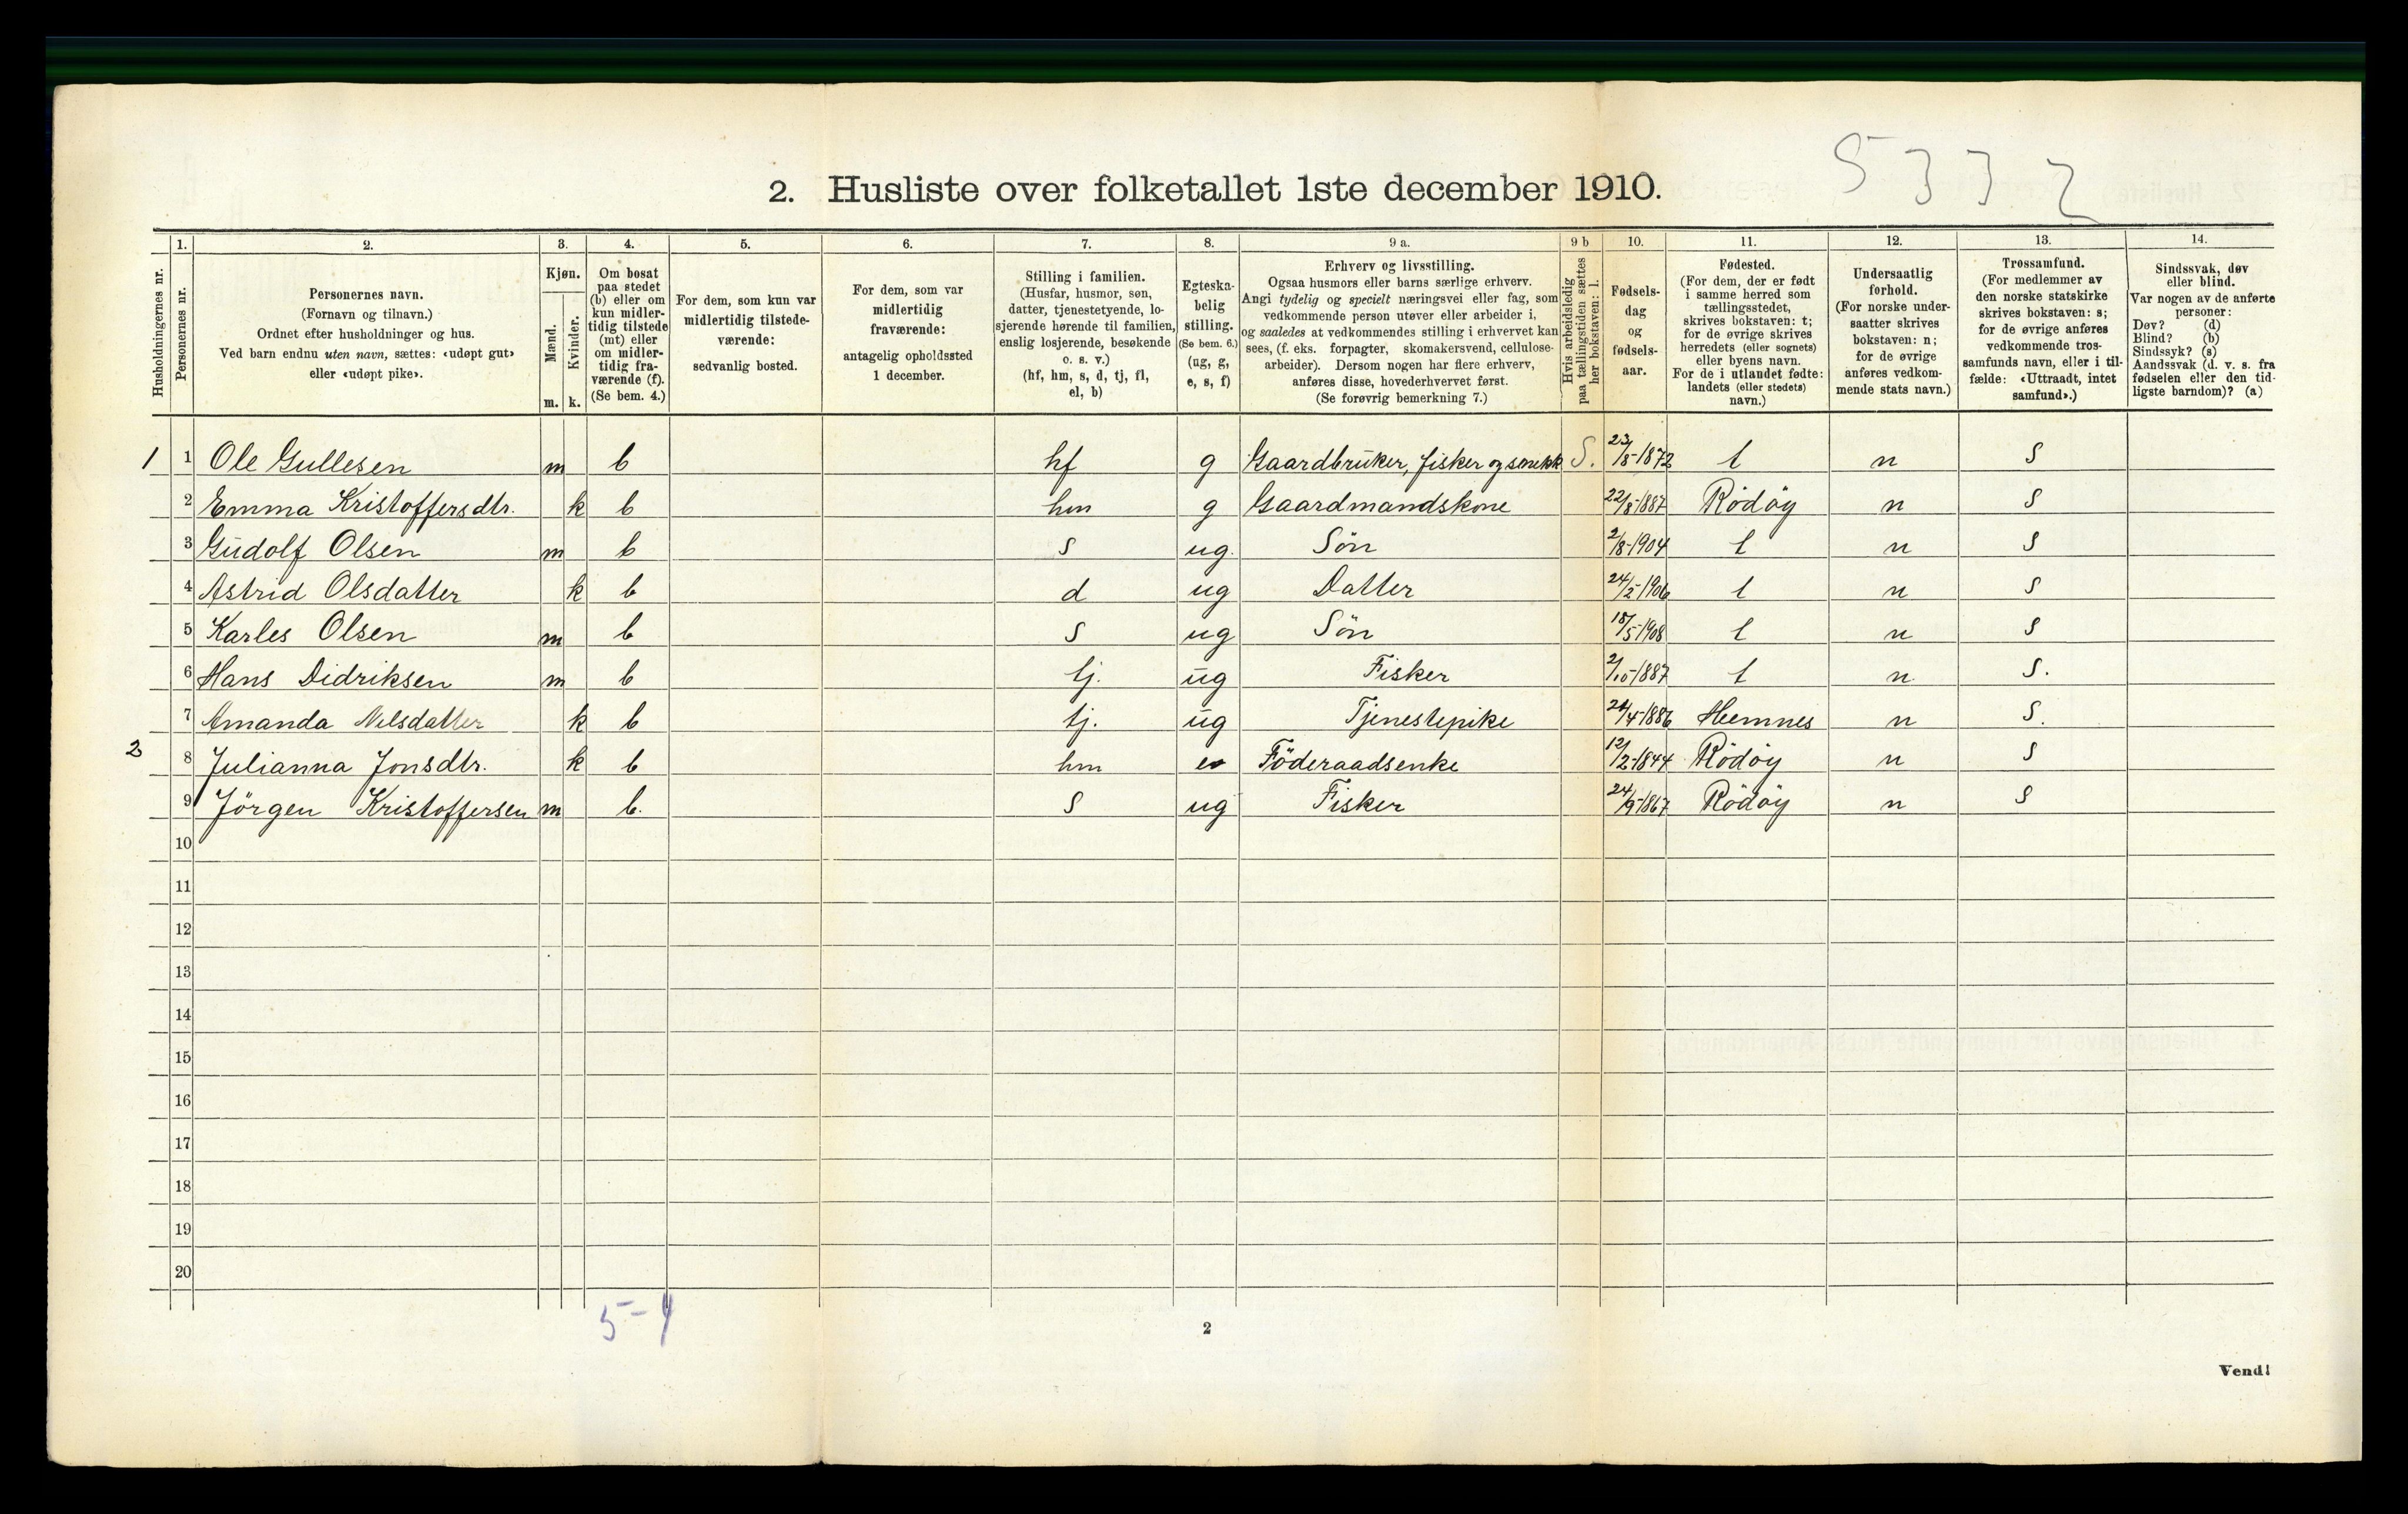 5332
2. Husliste over folketallet 1ste december 1910.
Husholdningernes nr.
1. Personernes nr.
2. Personernes navn.
(Fornavn og tilnavn.)
Ordnet efter husholdninger og hus.
Ved barn endnu uten navn, sættes: «udøpt gut»
eller «udøpt pike».
3. Kjøn.
Mænd. Kvinder.
m. k.
4. Om bosat
paa stedet
(b) eller om
kun midler-
tidig tilstede
(mt) eller
om midler-
tidig fra-
værende (f).
(Se bem. 4.)
5. For dem, som kun var
midlertidig tilstede-
værende:
sedvanlig bosted.
6. For dem, som var
midlertidig
fraværende:
antagelig opholdssted
1 december.
7. Stilling i familien.
(Husfar, husmor, søn,
datter, tjenestetyende, lo-
sjerende hørende til familien,
enslig losjerende, besøkende
o. s. v.)
(hf, hm, s, d, tj, fl,
el, b)
8. Egteska-
belig
stilling.
(Se bem. 6.)
(ug, g,
e, s, f)
9 a. Erhverv og livsstilling.
Ogsaa husmors eller barns særlige erhverv.
Angi tydelig og specielt næringsvei eller fag, som
vedkommende person utøver eller arbeider i,
og saaledes at vedkommendes stilling i erhvervet kan
sees, (f. eks. forpagter, skomakersvend, cellulose-
arbeider). Dersom nogen har flere erhverv,
anføres disse, hovederhvervet først.
(Se forøvrig bemerkning 7.)
9 b Hvis arbeidsledig
paa tællingstiden sættes
her bokstaven: l.
10. Fødsels-
dag
og
fødsels-
aar.
11. Fødested.
(For dem, der er født
i samme herred som
tællingsstedet,
skrives bokstaven: t;
for de øvrige skrives
herredets (eller sognets)
eller byens navn.
For de i utlandet fødte:
landets (eller stedets)
navn.)
12. Undersaatlig
forhold.
(For norske under-
saatter skrives
bokstaven: n;
for de øvrige
anføres vedkom-
mende stats navn.)
13. Trossamfund.
(For medlemmer av
den norske statskirke
skrives bokstaven: s;
for de øvrige anføres
vedkommende tros-
samfunds navn, eller i til-
fælde: «Uttraadt, intet
samfund».)
14. Sindssvak, døv
eller blind.
Var nogen av de anførte
personer:
Døv? (d)
Blind? (b)
Sindssyk? (s)
Aandssvak (d. v. s. fra
fødselen eller den tid-
ligste barndom)? (a)
1 1 Ole Gullesen m b hf g Gaardbruker, fisker og snekk S. 23/8-1872 t n S
2 Emma Kristoffersdtr. k b hm g Gaardmandskone 22/8-1887 Rödöy n S
3 Gudolf Olsen m b S ug. Sön 2/8-1904 t n S
4 Astrid Olsdatter k b d ug Datter 24/2-1906 t n S
5 Karles Olsen m b S ug Sön 18/5-1908 t n S
6 Hans Didriksen m b tj. ug Fisker 2/10-1887 t n S.
7 Amanda Nilsdatter k b tj. ug Tjenestepike /4-1886 Hemnes n S.
2 8 Julianna Jonsdtr. k b hm e Föderaadsenke 12/2-1844 Rödöy n S
9 Jörgen Kristoffersen m b. S ug Fisker 24/9-1867 Rödöy n S
10
11
12
13
14
15
16
17
18
19
20
5-4
2
Vend!